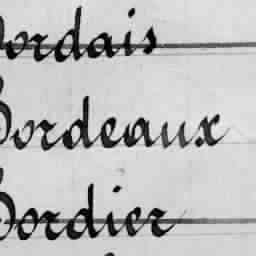 Bordais
Bordeaux
Bordier